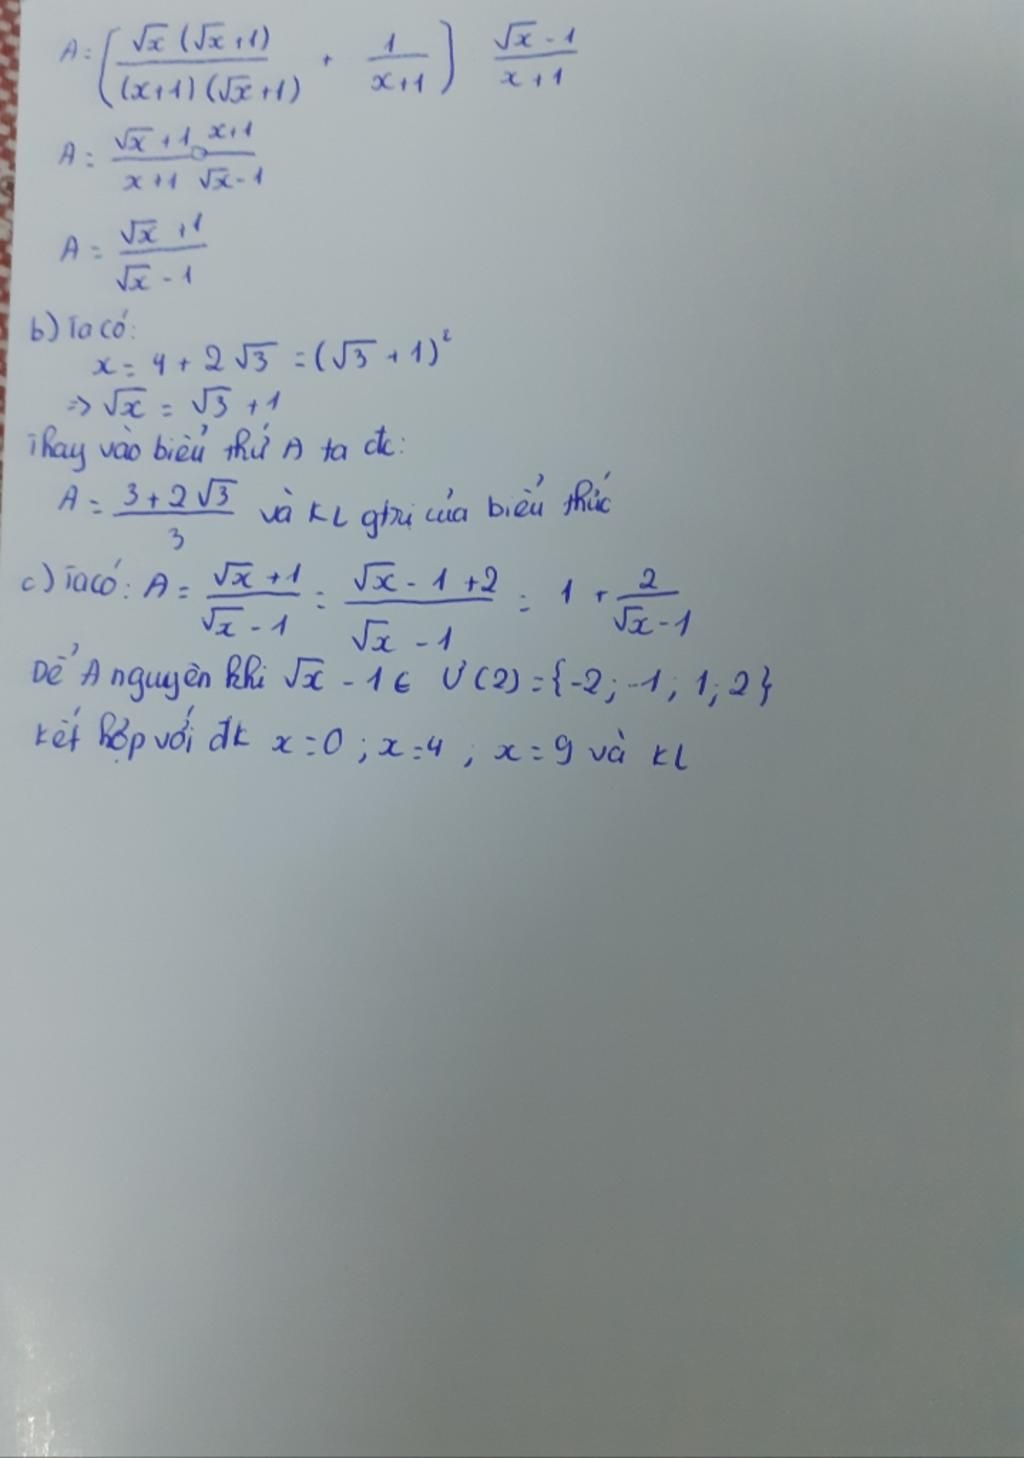 A = ( √x (√x + 1) / (x+1) (√x + 1) + 1 / x+1 ) √x - 1 / x + 1
A = √x + 1 / x + 1 . x+1 / √x - 1
A = √x + 1 / √x - 1
b) Ta có:
x = 4 + 2√3 = (√3 + 1)²
=> √x = √3 + 1
Thay vào biểu thứ A ta đc:
A = 3 + 2√3 / 3 và KL gtri của biểu thức
c) Ta có: A = √x + 1 / √x - 1 = √x - 1 + 2 / √x - 1 = 1 + 2 / √x - 1
Để A nguyên khi √x - 1 ∈ Ư(2) = {-2; -1; 1; 2}
Kết hợp với đk x = 0 ; x = 4 ; x = 9 và KL